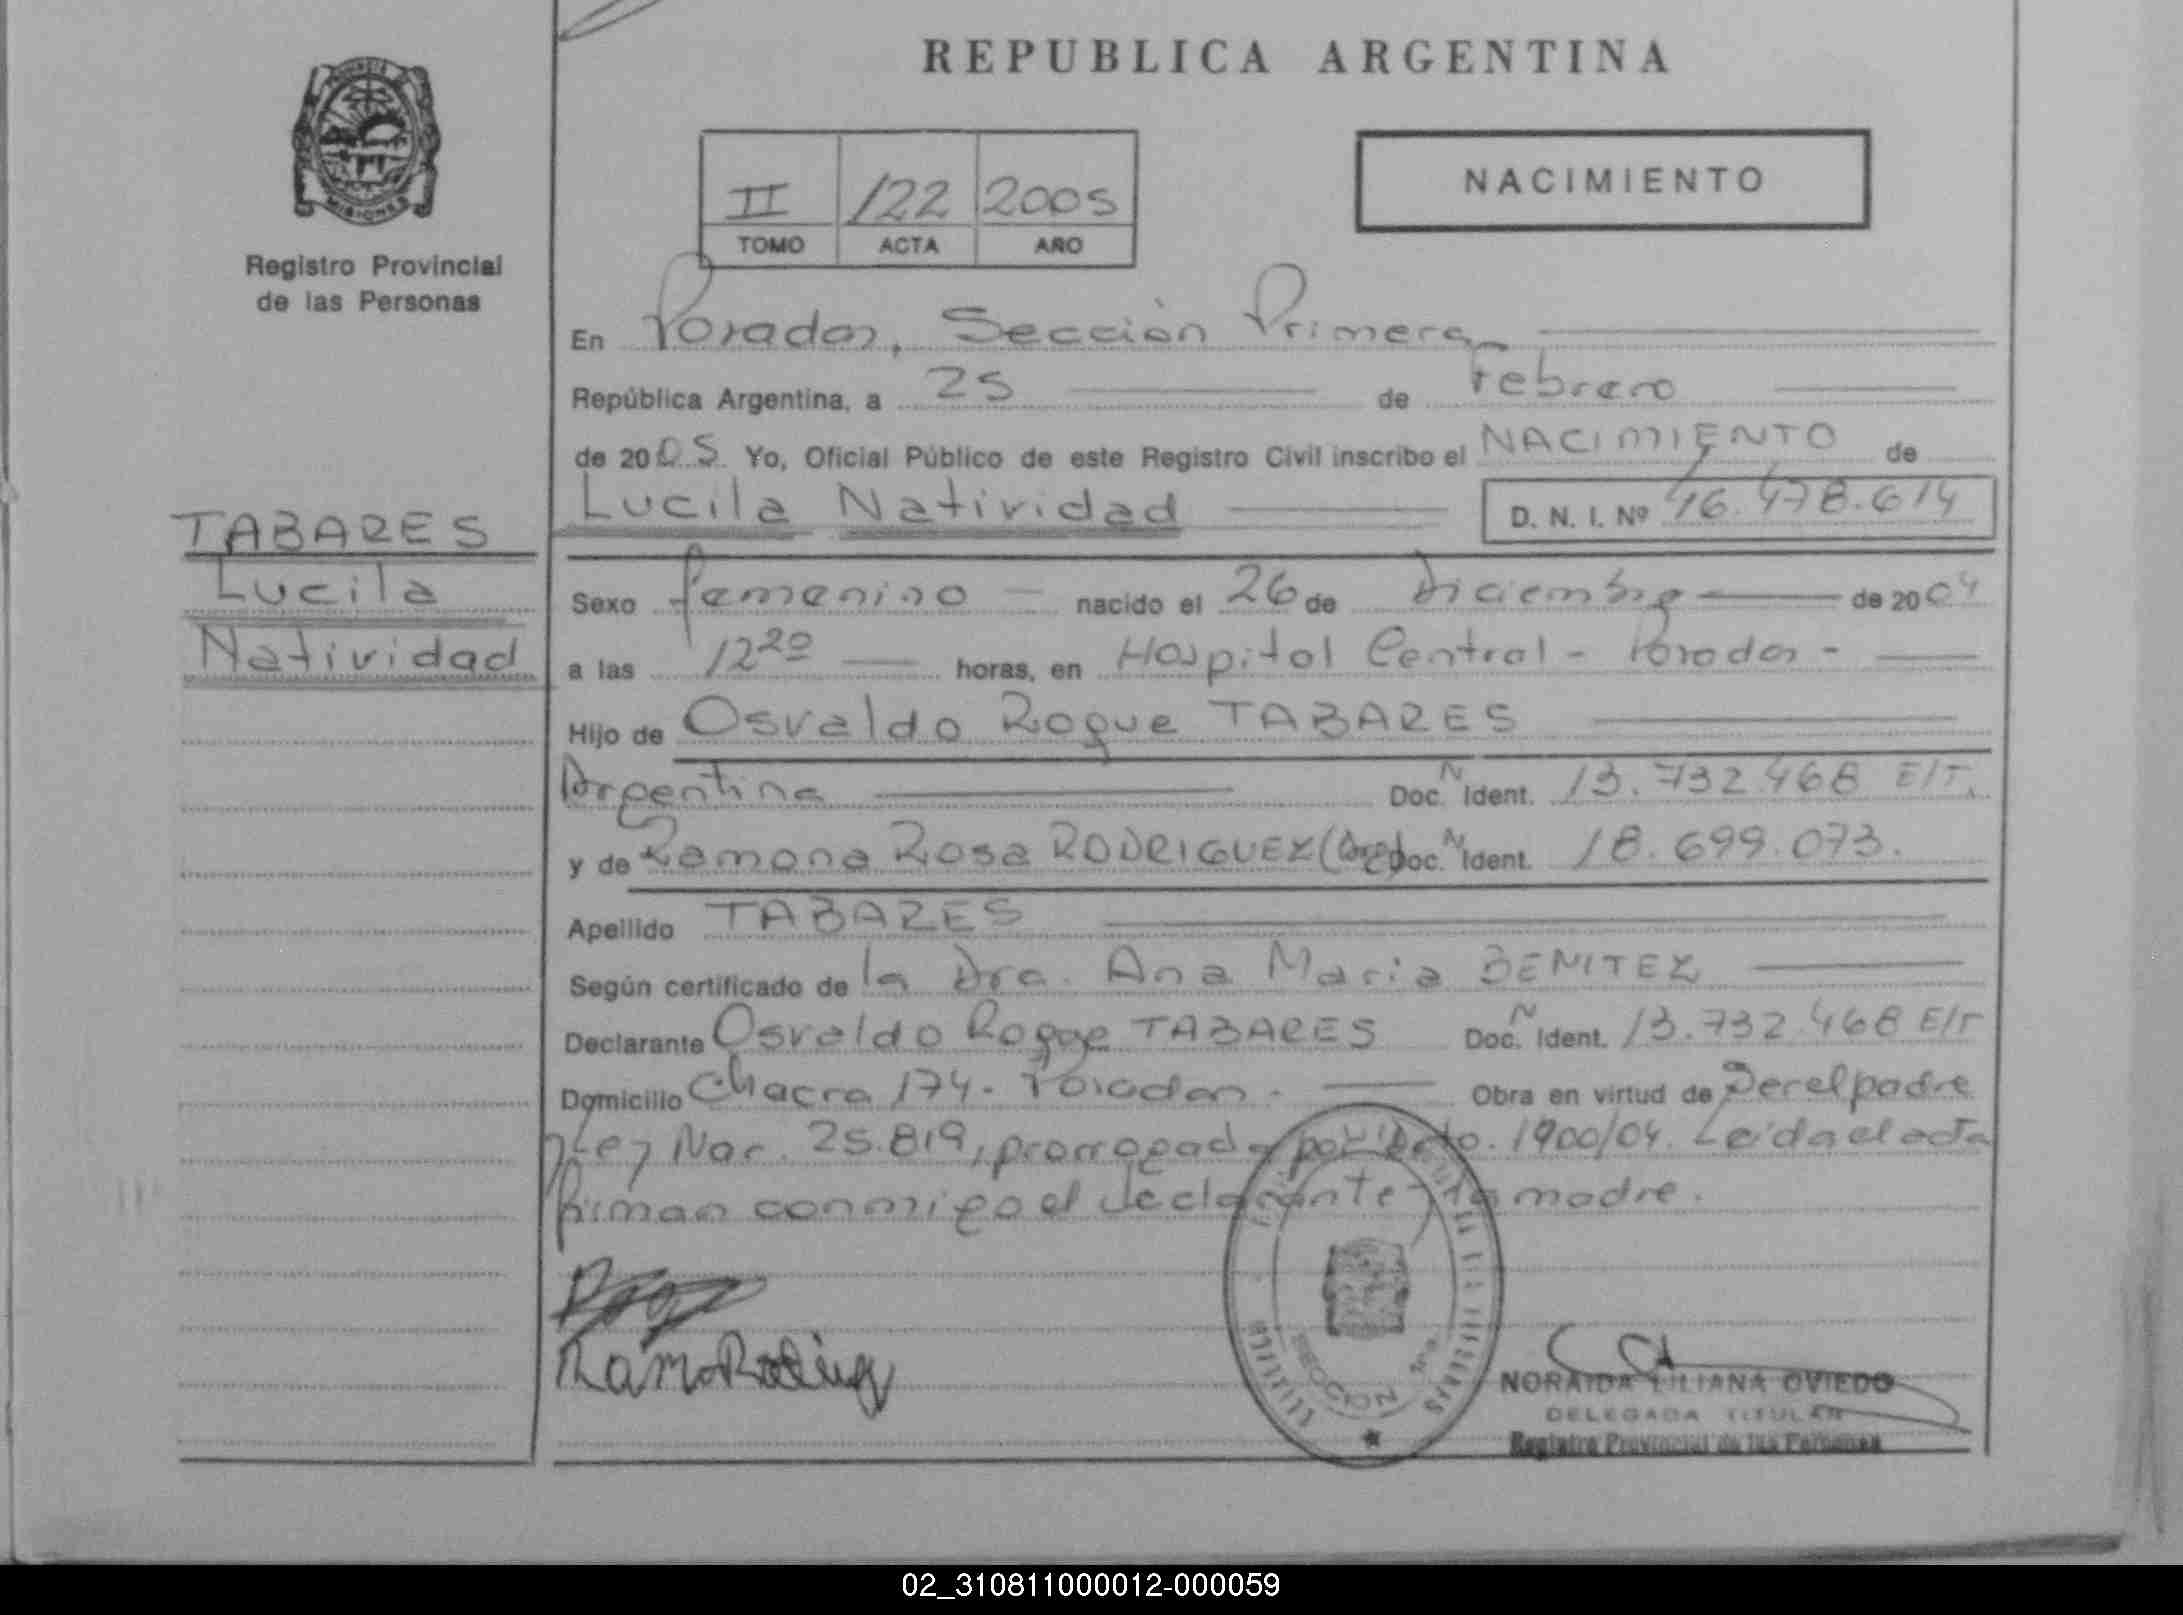 REPUBLICA ARGENTINA
PROVINCIA DE
MISIONES
Registro Provincial
de las Personas
II 122 2005
TOMO ACTA AÑO
NACIMIENTO
En Posadas, Sección Primera
República Argentina, a 25 de Febrero
de 2005 Yo, Oficial Público de este Registro Civil inscribo el NACIMIENTO de
Lucila Natividad D. N. I. Nº 46.478.614
TABARES
Lucila
Natividad
Sexo femenino nacido el 26 de Diciembre de 2004
a las 12²⁰ horas, en Hospital Central - Posadas -
Hijo de Osvaldo Roque TABARES
Argentina Doc. N Ident. 13.732.468 E/T.
y de Ramona Rosa RODRIGUEZ (Arg) Doc. N Ident. 18.699.073.
Apellido TABARES
Según certificado de la Dra. Ana Maria BENITEZ
Declarante Osvaldo Roque TABARES Doc. N Ident. 13.732.468 E/T
Domicilio Chacra 174 - Posadas - Obra en virtud de Ser el padre
y Ley Nac. 25.819, prorrogada por Dcto. 1900/04. Leida el acta
firman conmigo el declarante y la madre.
Ramo Rodrig
SECCION
NORAIDA LILIANA OVIEDO
DELEGADA TITULAR
Registro Provincial de las Personas
02_310811000012-000059